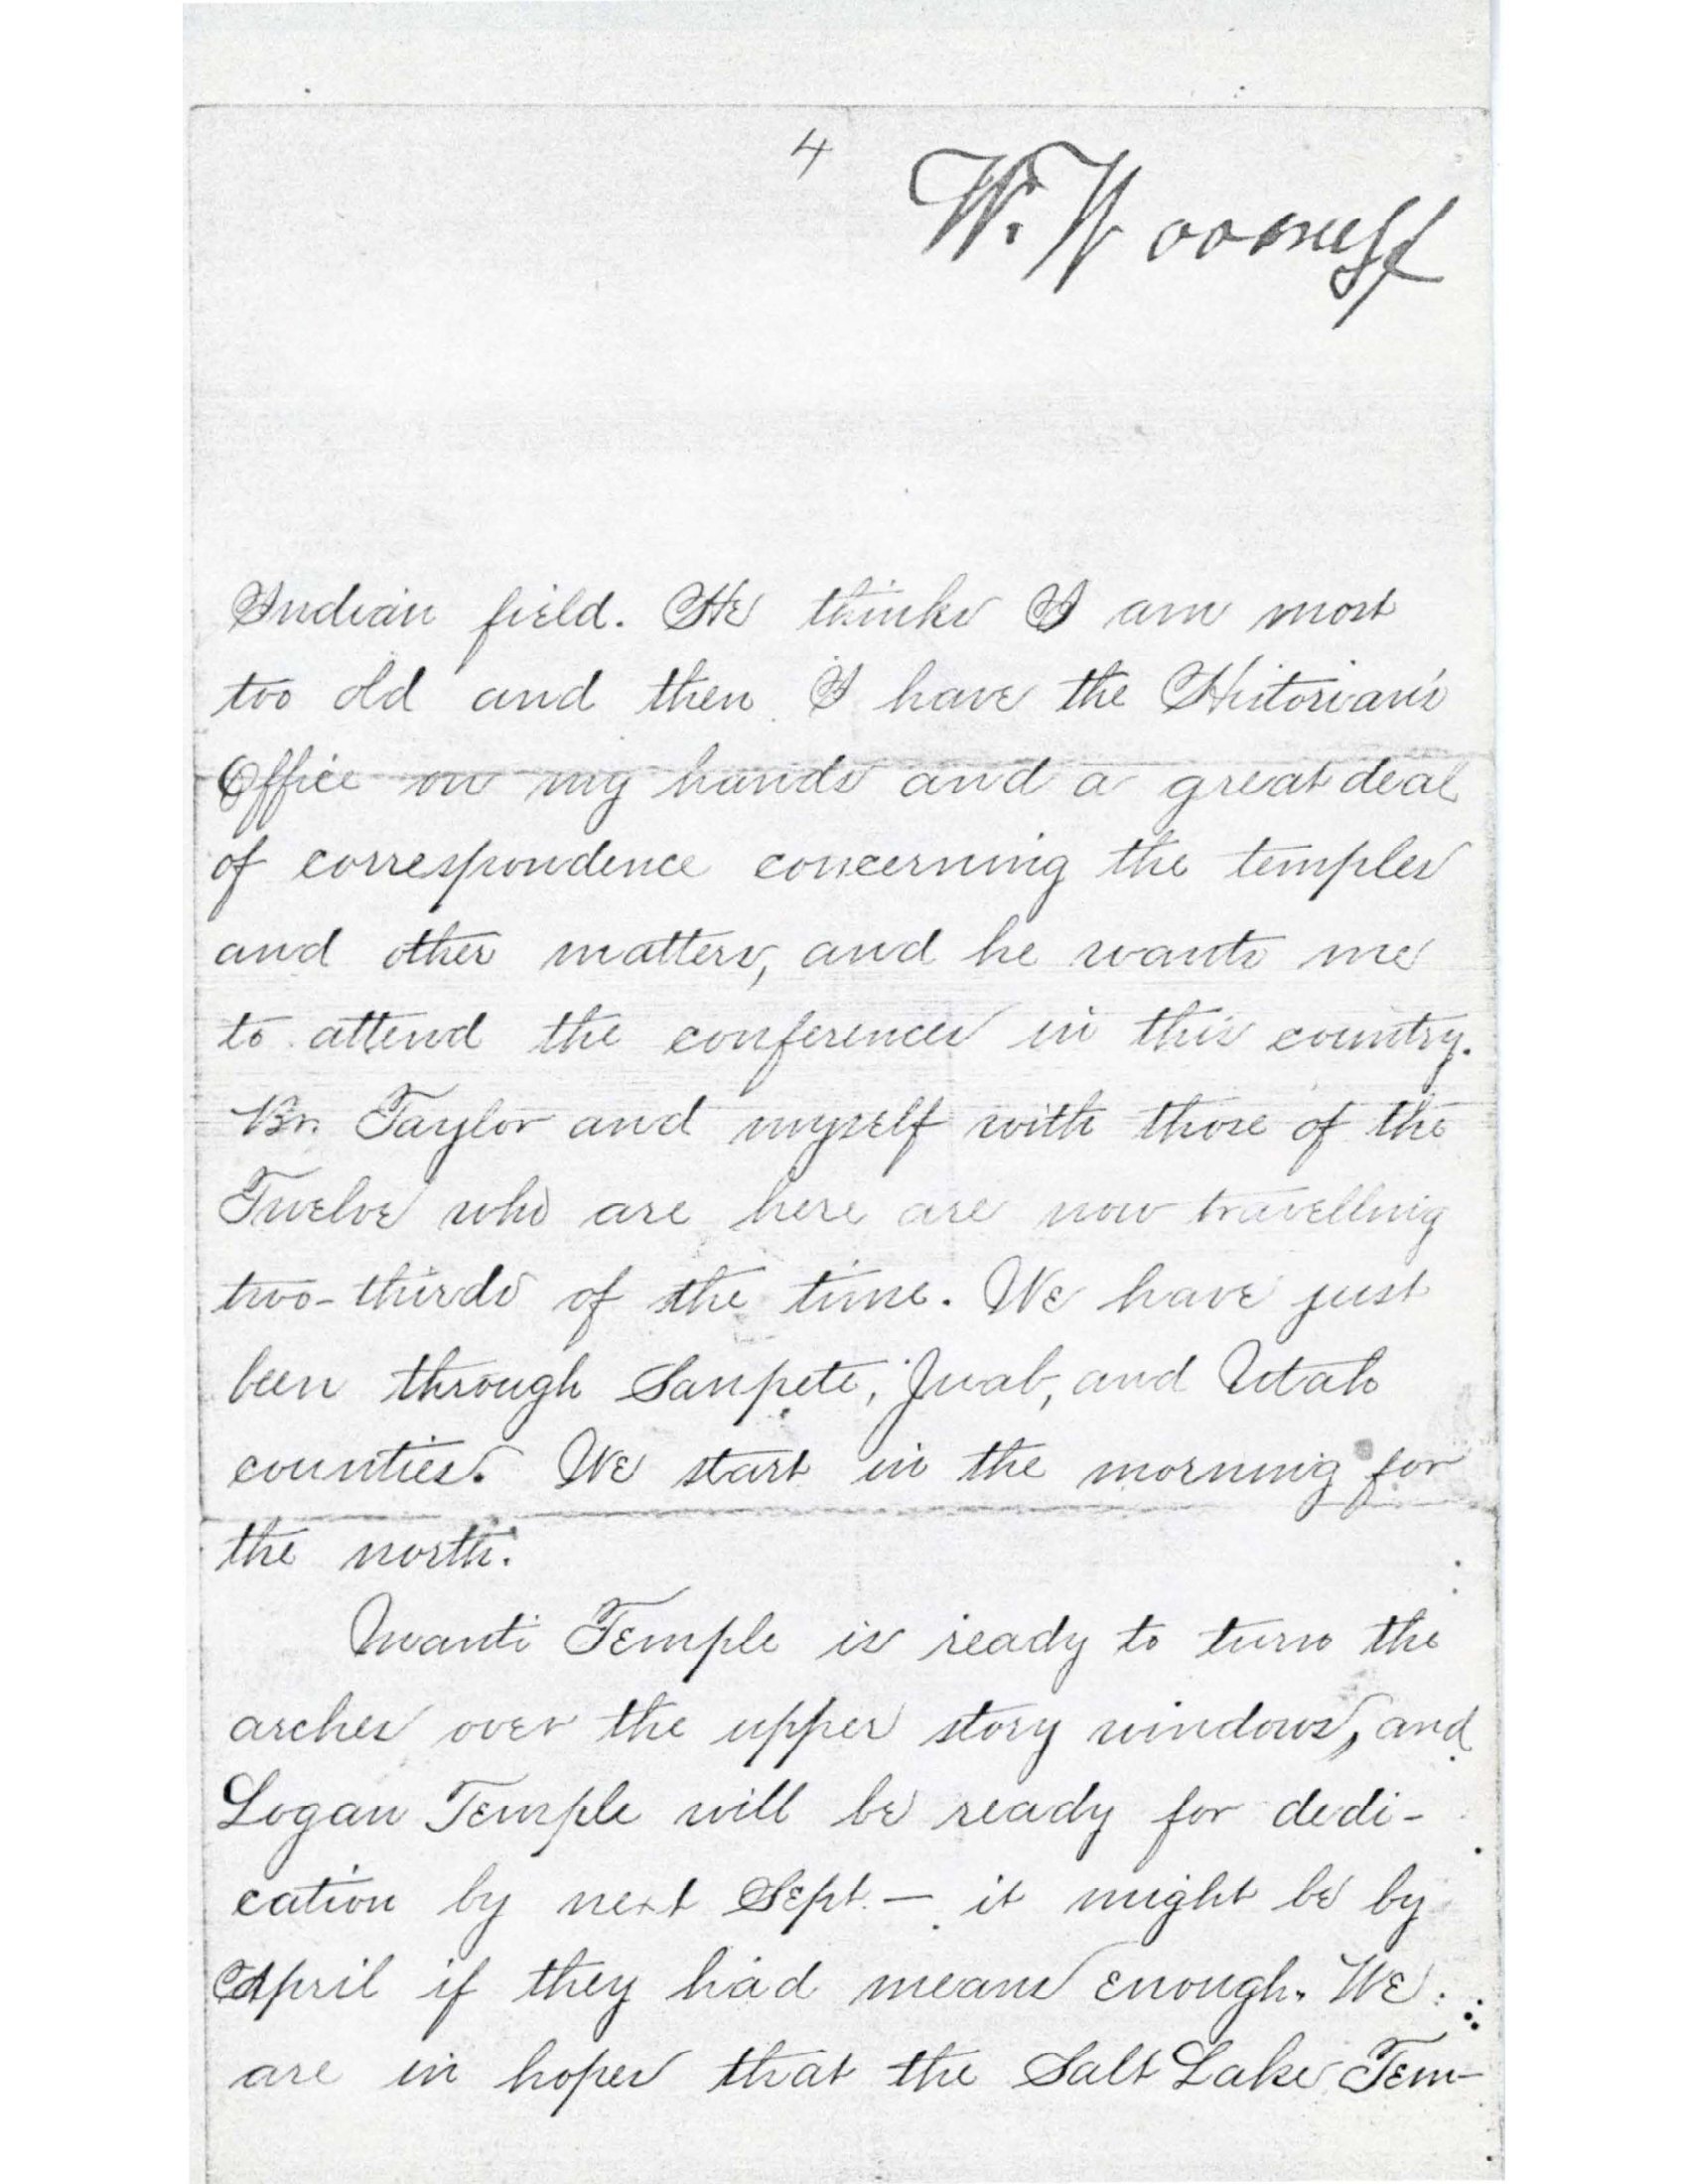 4
W. Woodruff
Indian field. He thinks I am most
too old and then I have the Historian's
Office on my hands and a great deal
of correspondence concerning the temples
and other matters, and he wants me
to attend the conferences in this country.
Br. Taylor and myself with those of the
Twelve who are here are now travelling
two-thirds of the time. We have just
been through Sanpete, Juab, and Utah
counties. We start in the morning for
the north.
Manti Temple is ready to turn the
arches over the upper story windows, and
Logan Temple will be ready for dedi-
cation by next Sept. — it might be by
April if they had means enough. We
are in hopes that the Salt Lake Tem-